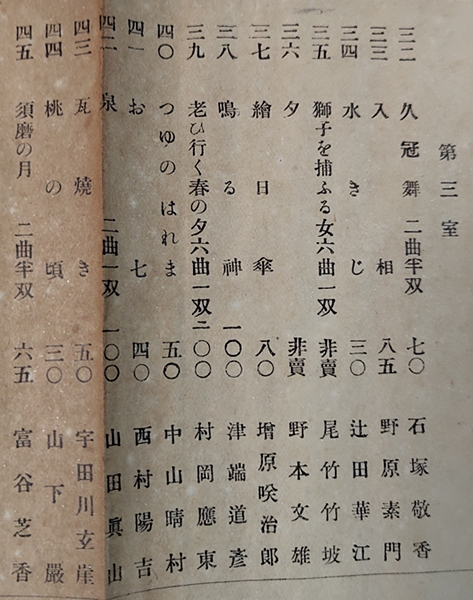 第三室
三二 久冠舞 二曲半双 七〇 石塚敬香
三三 入相 八五 野原素門
三四 水きじ 三〇 辻田華江
三五 獅子を捕ふる女 六曲一双 非賣 尾竹竹坡
三六 夕 非賣 野本文雄
三七 繪日傘 八〇 增原咲治郎
三八 鳴る神 一〇〇 津端道彥
三九 老ひ行く春の夕 六曲一双 二〇〇 村岡應東
四〇 つゆのはれま 五〇 中山晴村
四一 お七 四〇 西村陽吉
四二 泉 二曲一双 一〇〇 山田眞山
四三 瓦燒き 五〇 宇田川玄崖
四四 桃の頃 三〇 山下嚴
四五 須磨の月 二曲半双 六五 富谷芝香